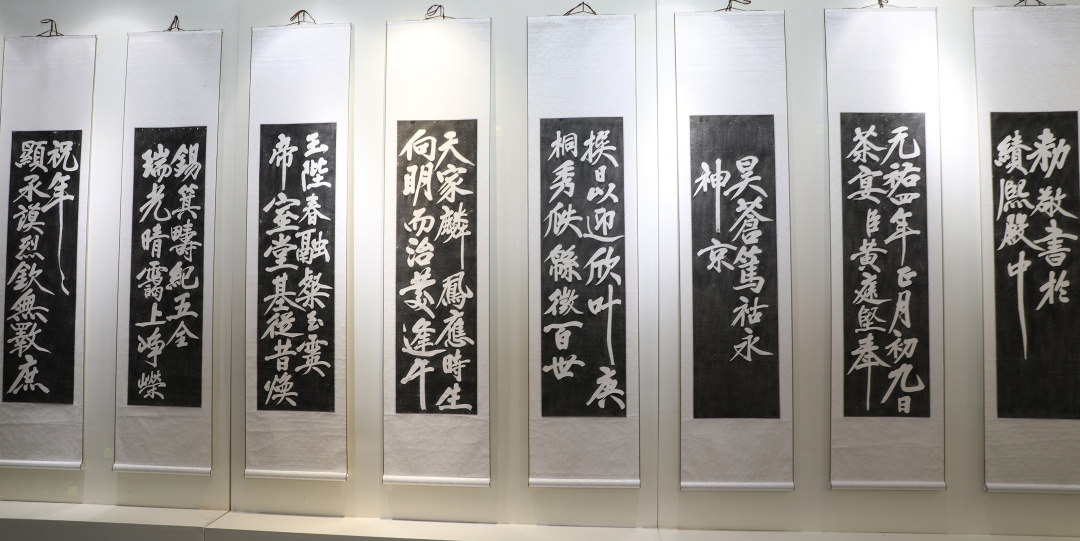 祝年
顯承謨烈欽無斁庶
錫箕疇紀五全
瑞光晴靄上崢嶸
玉陛春融粲玉霙
帝室堂基從昔煥
天家麟鳳應時生
向明而治逢午
揆日以迎欣叶庚
桐秀瓞緜徵百世
昊蒼篤祜永
神京
元祐四年正月初九日
茶宴臣黃庭堅奉
勅敬書於
績熙殿中